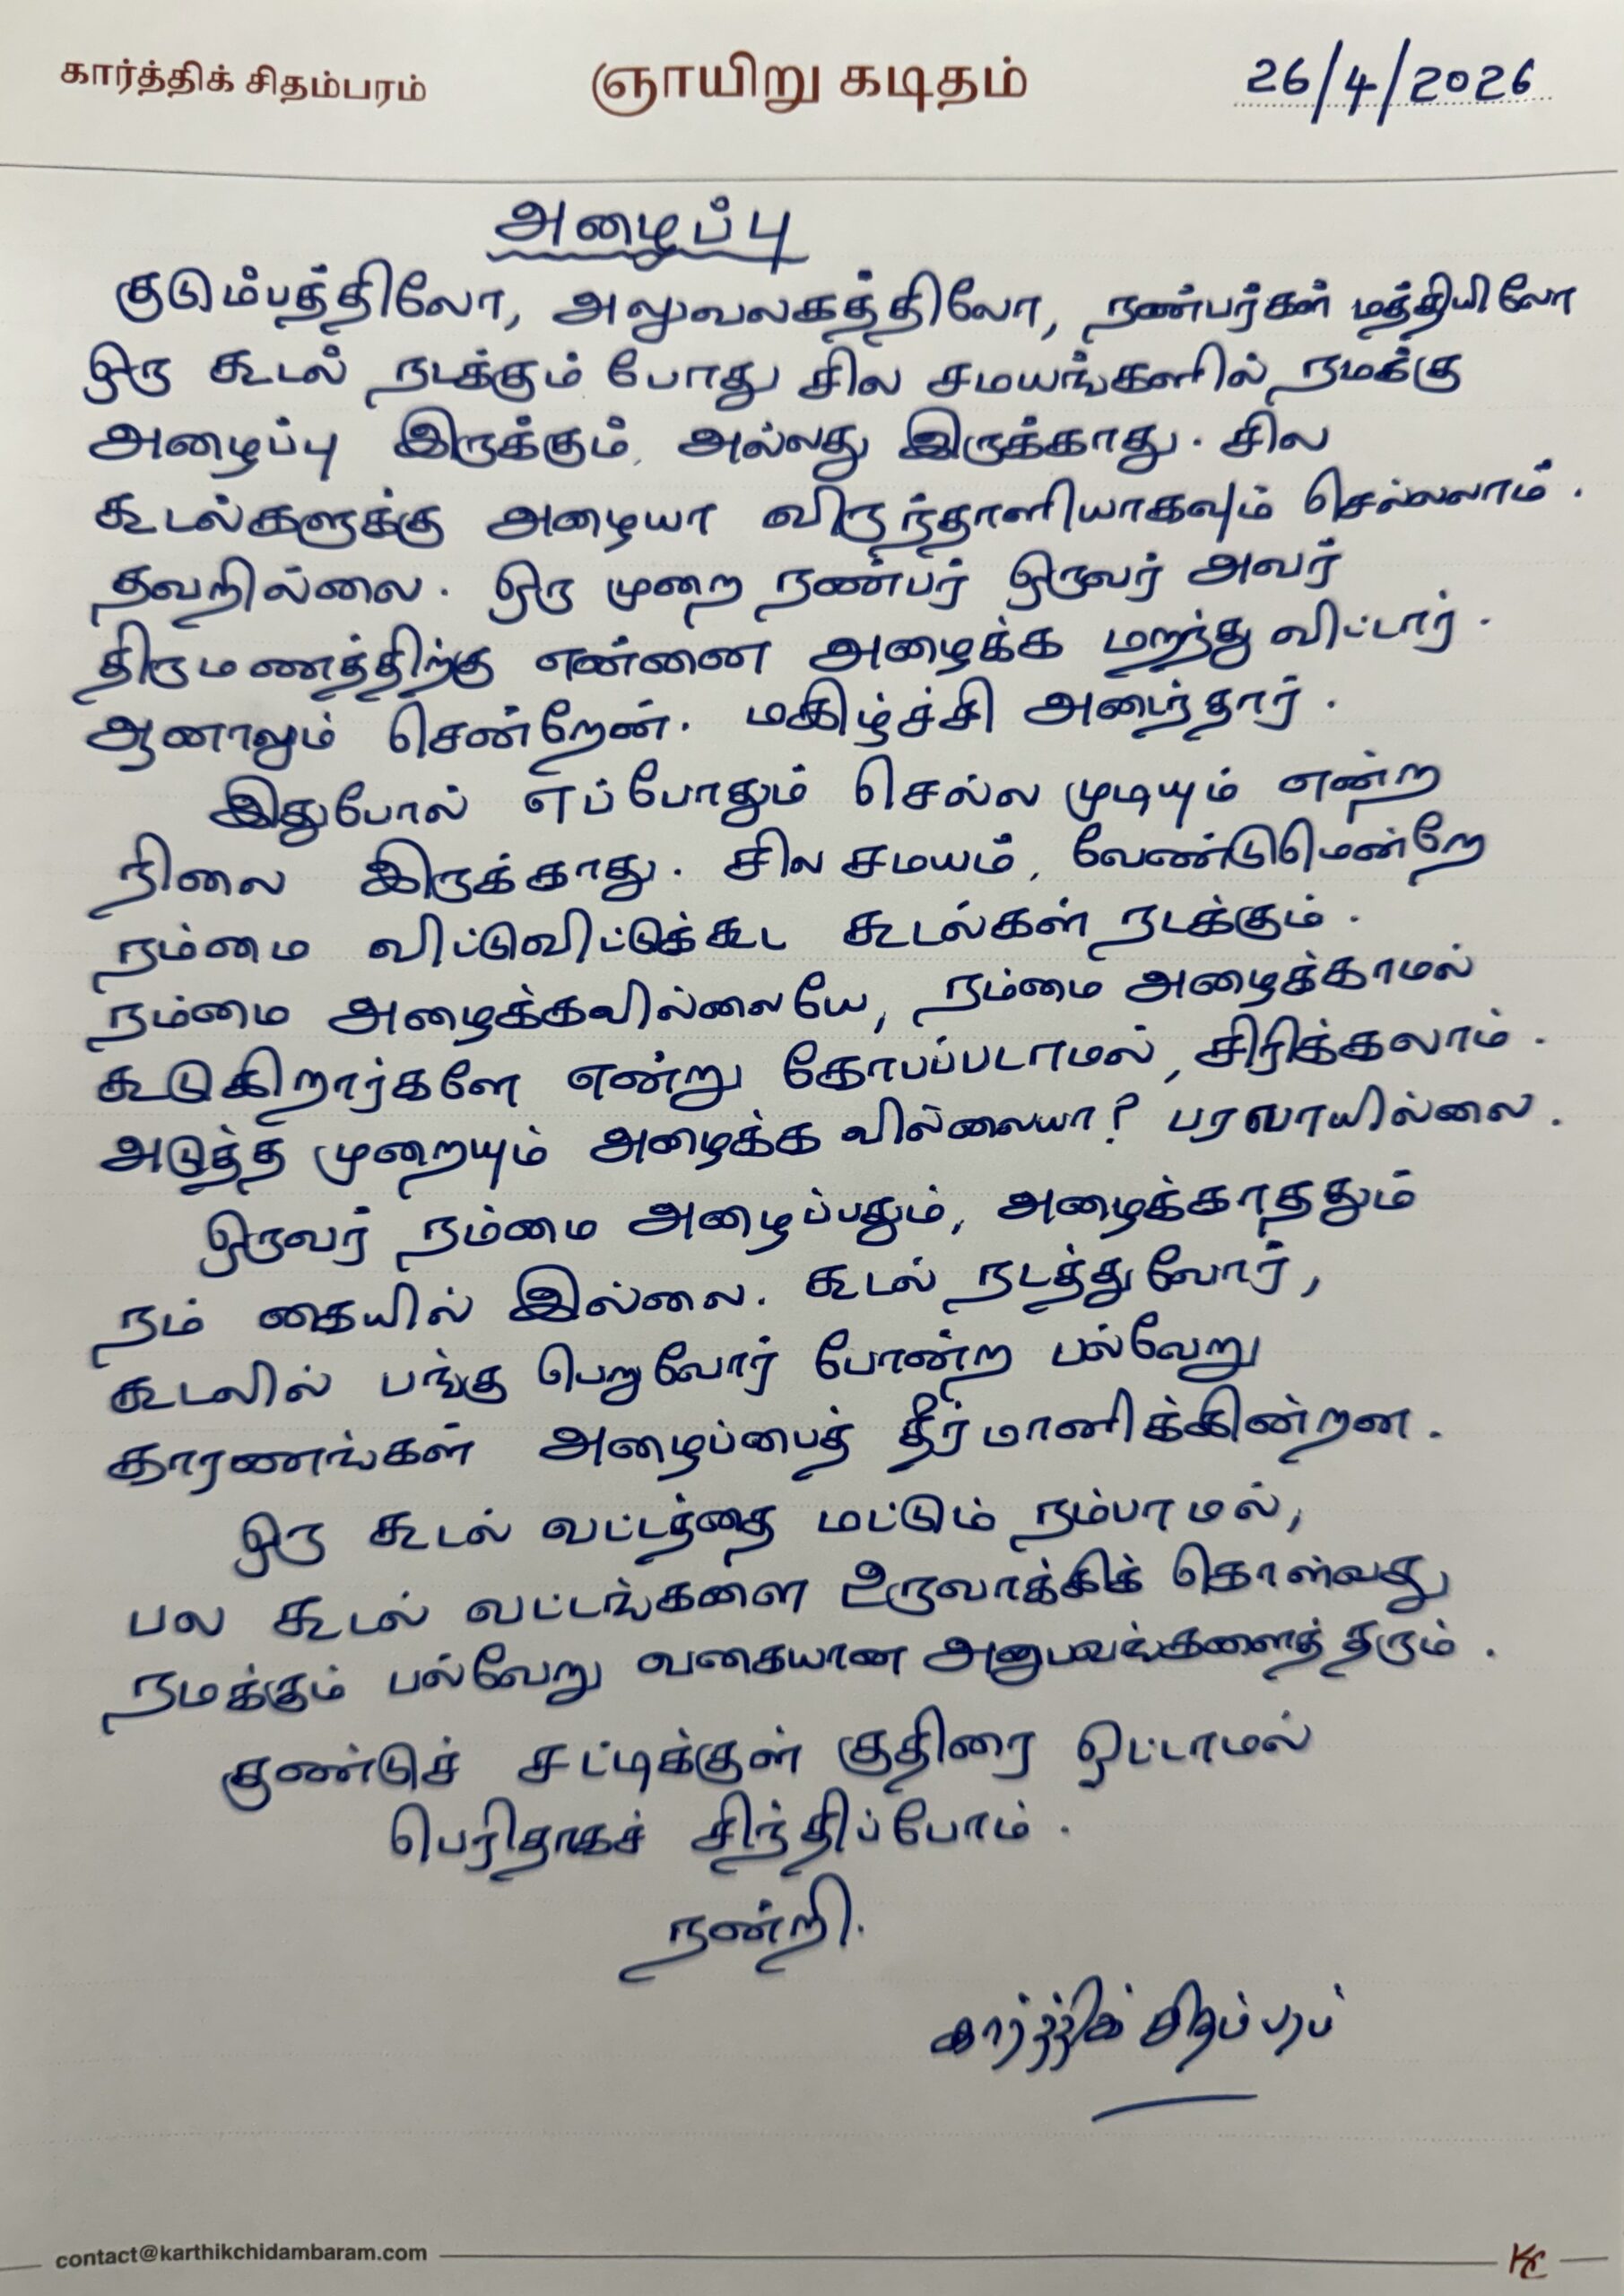 கார்த்திக் சிதம்பரம்
ஞாயிறு கடிதம்
26/4/2026
அழைப்பு
குடும்பத்திலோ, அலுவலகத்திலோ, நண்பர்கள் மத்தியிலோ
ஒரு கூடல் நடக்கும் போது சில சமயங்களில் நமக்கு
அழைப்பு இருக்கும், அல்லது இருக்காது. சில
கூடல்களுக்கு அழையா விருந்தாளியாகவும் செல்லலாம்.
தவறில்லை. ஒரு முறை நண்பர் ஒருவர் அவர்
திருமணத்திற்கு என்னை அழைக்க மறந்து விட்டார்.
ஆனாலும் சென்றேன். மகிழ்ச்சி அடைந்தார்.
இதுபோல் எப்போதும் செல்ல முடியும் என்ற
நிலை இருக்காது. சில சமயம், வேண்டுமென்றே
நம்மை விட்டுவிட்டுக்கூட கூடல்கள் நடக்கும்.
நம்மை அழைக்கவில்லையே, நம்மை அழைக்காமல்
கூடுகிறார்களே என்று கோபப்படாமல், சிரிக்கலாம்.
அடுத்த முறையும் அழைக்க வில்லையா? பரவாயில்லை.
ஒருவர் நம்மை அழைப்பதும், அழைக்காததும்
நம் கையில் இல்லை. கூடல் நடத்துவோர்,
கூடலில் பங்கு பெறுவோர் போன்ற பல்வேறு
காரணங்கள் அழைப்பைத் தீர்மானிக்கின்றன.
ஒரு கூடல் வட்டத்தை மட்டும் நம்பாமல்,
பல கூடல் வட்டங்களை உருவாக்கிக் கொள்வது
நமக்கும் பல்வேறு வகையான அனுபவங்களைத் தரும்.
குண்டுச் சட்டிக்குள் குதிரை ஓட்டாமல்
பெரிதாகச் சிந்திப்போம்.
நன்றி.
கார்த்திக் சிதம்பரம்
contact@karthikchidambaram.com
KC